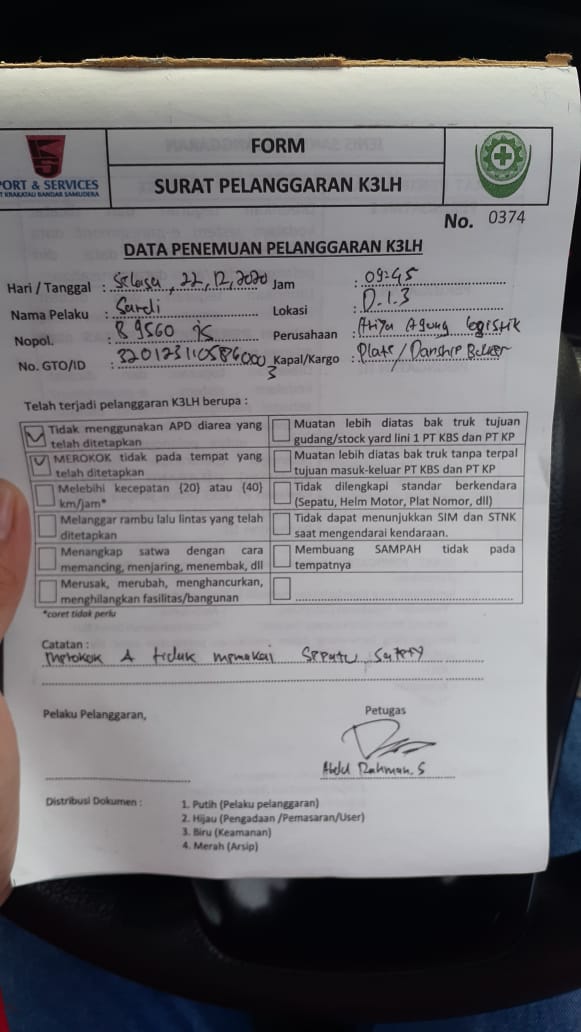 PORT & SERVICES
PT KRAKATAU BANDAR SAMUDERA
FORM
SURAT PELANGGARAN K3LH
No. 0374
DATA PENEMUAN PELANGGARAN K3LH
Hari / Tanggal : Selasa, 22, 12, 2020 Jam : 09:45
Nama Pelaku : Sardi Lokasi : D.1.3
Nopol. : B 9560 Perusahaan : Agung logistik
No. GTO/ID : Kapal/Kargo : Plate /
Telah terjadi pelanggaran K3LH berupa :
Tidak menggunakan APD diarea yang telah ditetapkan
Muatan lebih diatas bak truk tujuan gudang/stock yard lini 1 PT KBS dan PT KP
MEROKOK tidak pada tempat yang telah ditetapkan
Muatan lebih diatas bak truk tanpa terpal tujuan masuk-keluar PT KBS dan PT KP
Melebihi kecepatan {20} atau {40} km/jam*
Tidak dilengkapi standar berkendara (Sepatu, Helm Motor, Plat Nomor, dll)
Melanggar rambu lalu lintas yang telah ditetapkan
Tidak dapat menunjukkan SIM dan STNK saat mengendarai kendaraan.
Menangkap satwa dengan cara memancing, menjaring, menembak, dll
Membuang SAMPAH tidak pada tempatnya
Merusak, merubah, menghancurkan, menghilangkan fasilitas/bangunan
*coret tidak perlu
Catatan :
merokok & tiduk memakai Seputu Sufety
Pelaku Pelanggaran, Petugas
Abdul Rahman. S
Distribusi Dokumen : 1. Putih (Pelaku pelanggaran)
2. Hijau (Pengadaan /Pemasaran/User)
3. Biru (Keamanan)
4. Merah (Arsip)